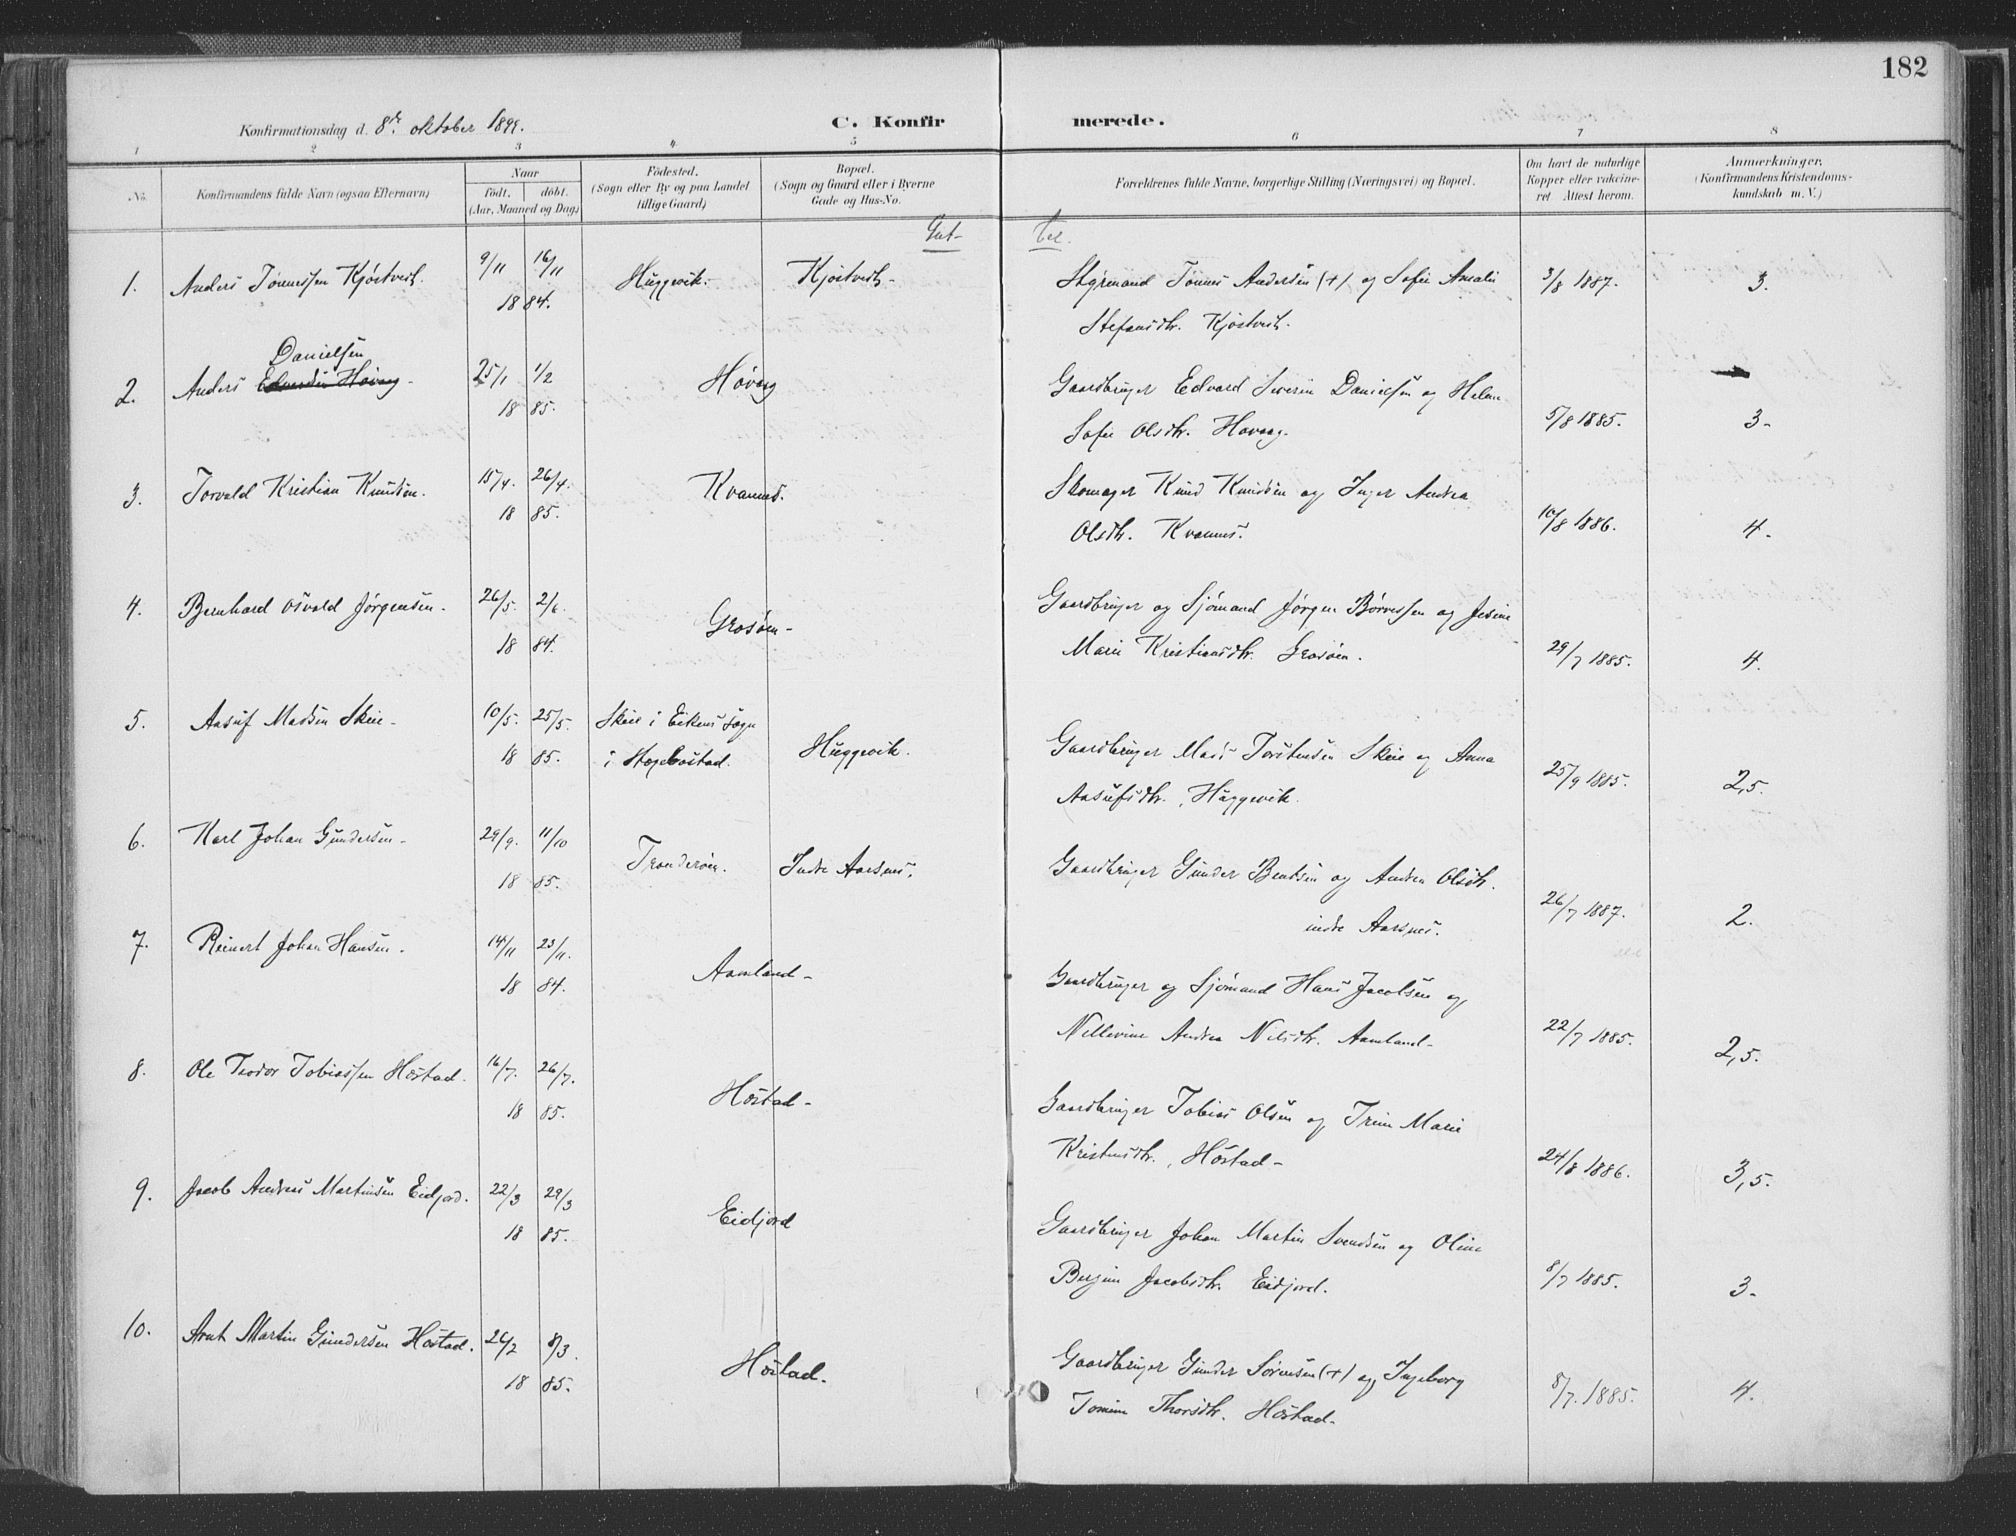 182
Konfirmationsdag d. 8de oktober 1899.
C. Konfir merede.
1 2 3 4 5 6 7 8
No.
Konfirmandens fulde Navn (ogsaa Efternavn)
Naar
født. døbt.
(Aar, Maaned og Dag)
Fødested.
(Sogn eller By og paa Landet
tillige Gaard)
Bopæl.
(Sogn og Gaard eller i Byerne
Gade og Hus-No.
Forældrenes fulde Navne, borgerlige Stilling (Næringsvei) og Bopæl.
Om havt de naturlige
Kopper eller vakcine-
ret. Attest herom.
Anmærkninger.
(Konfirmandens Kristendoms-
kundskab m. V.)
Gut- ter.
1. Anders Tønnessen Kjøstvedt. 9/11 16/11 Huggevik. Kjøstvedt- Styrmand Tønnes Andersen (+) og Sofie Amalie 3/8 1887. 3.
18 84. Stefansdtr. Kjøstvedt.
Danielsen
2. Anders Edvardsen Høvag- 25/1 1/2 Høvag Gaardbruger Edvard Severin Danielsen og Helene
18 85. Sofie Olsdtr. Høvaag. 5/8 1885. 3-
3. Torvald Kristian Knudsen. 15/4. 26/4. Kvannes. Skomager Knud Knudsen og Inger Andrea
18 85. Olsdtr. Kvannes. 10/8 1886. 4.
4. Bernhard Osvald Jørgensen. 26/5. 2/6. Grosøen- Gaardbruger og Sjømand Jørgen Børresen og Jesine
18 84. Marie Kristiansdtr. Grosøen. 29/7 1885. 4.
5. Aasuf Madsen Skeie- 10/5. 25/5. Skeie i Eikens Sogn
18 85. i Hægebostad. Huggevik. Gaardbruger Mads Torstensen Skeie og Anna
Aasufsdtr., Huggevik. 25/9 1885. 2,5.
6. Karl Johan Gundersen- 29/9. 11/10 Tronderøen. Indre Aarsnes. Gaardbruger Gunder Bentsen og Andrea Olsdtr.
18 85. indre Aarsnes. 26/7 1887. 2.
7. Reinert Johan Hansen. 14/11 23/11. Aamland- Gaardbruger og Sjømand Hans Jacobsen og
18 84. Nillevine Andrea Nilsdtr. Aamland- 22/7 1885. 2,5.
8. Ole Teodor Tobiassen Høstad. 16/7. 26/7. Høstad- Gaardbruger Tobias Olsen og Trine Marie
18 85. Kristensdtr., Høstad- 24/8 1886. 3,5.
9. Jacob Andreas Martinsen Eidjord. 22/3 29/3 Eidjord Gaardbruger Johan Martin Svendsen og Oline
18 85. Bergine Jacobsdtr. Eidjord. 8/7 1885. 3-
10. Arnt Martin Gundersen Høstad. 26/2 8/3. Høstad. Gaardbruger Gunder Sørensen (+) og Ingeborg
18 85. Tomine Thorsdtr. Høstad- 8/7. 1885. 4.